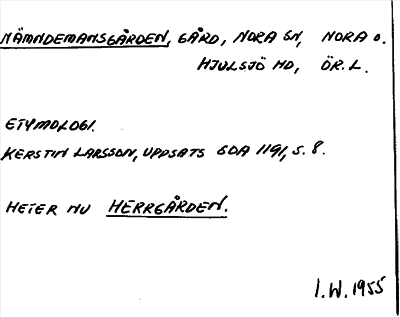 NÄMNDEMANSGÅRDEN, GÅRD, NORA SN, NORA O.
HJULSJÖ HD, ÖR. L.
ETYMOLOGI.
KERSTIN LARSSON, UPPSATS GDA 1191, S. 8.
HETER NU HERRGÅRDEN.
I. W. 1955